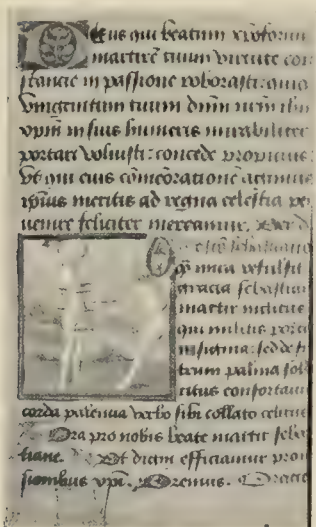 Deus qui beatum xp̄oforum
martirē tuum virtute con
stancie in passione roborasti: quiq
vnigenitum tuum dn̄m nr̄m ih̄m
xp̄m in suis humeris mirabiliter
portare voluisti: concede propicius:
vt qui eius cōmeōrationē agimus
ip̄ius meritis ad regna celestia per
uenire feliciter mereamur. Per
sebastiano
O q̄ mira refulsit
gracia sebastian
martir inclitus
qui militis
insignia: sed de
trum palma
citus confortauit
corda pallencia verbo sibi collato celitus
Ora pro nobis beate martir seba
tiane. Vt digni efficiamur prom
sionibus xp̄i. Oremus. Oracio